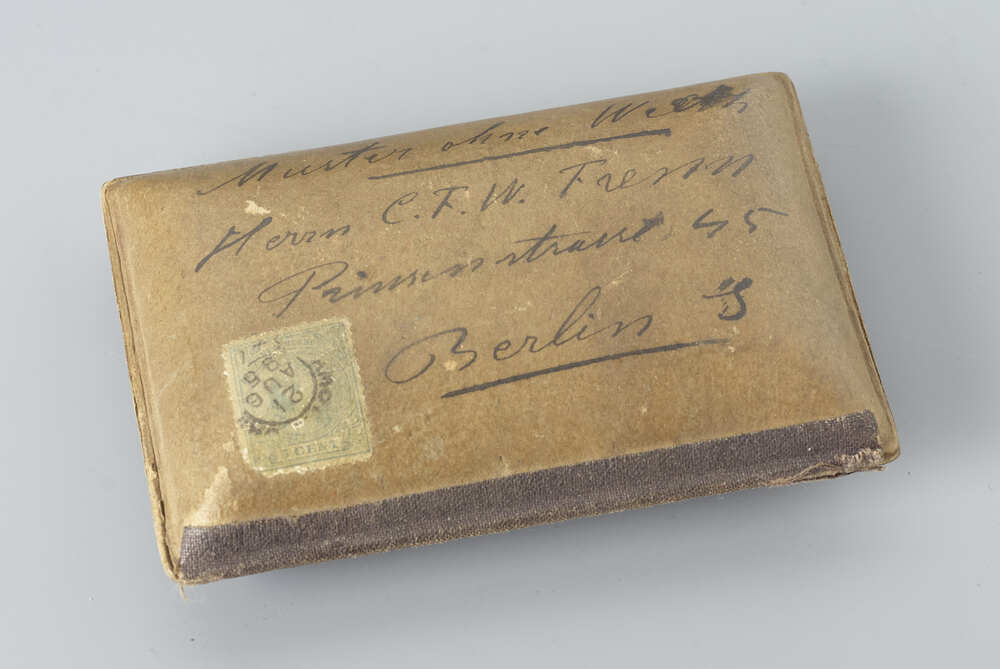 Muster ohne Werth
Herrn C. F. W. Fremm
Prinsenstrasse 45
Berlin S
21
AU
CENT